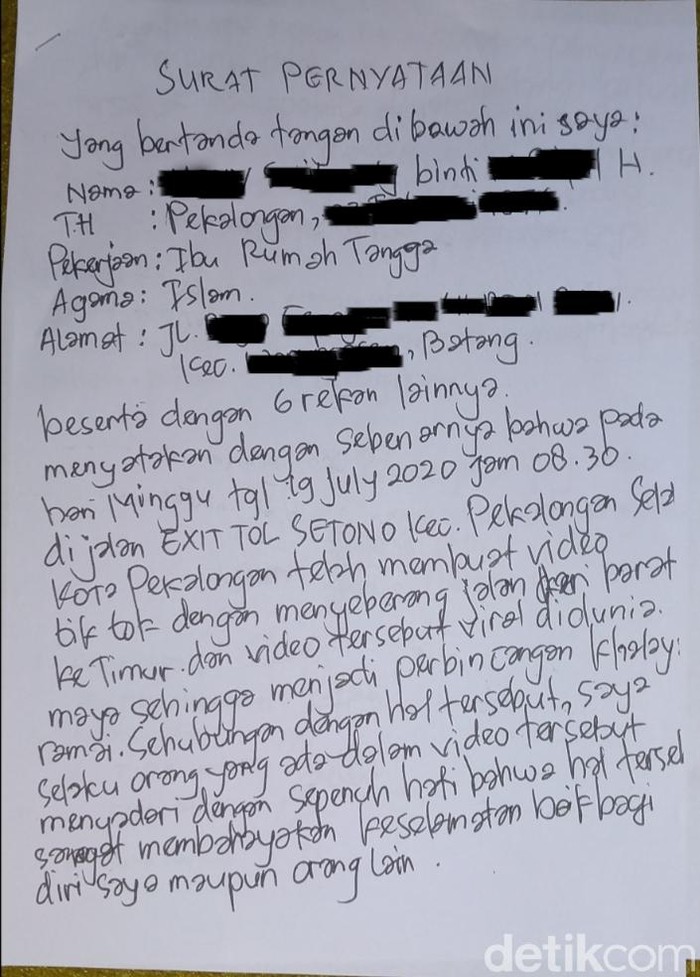 SURAT PERNYATAAN
Yang bertanda tangan dibawah ini saya:
Nama : binti H.
T.H : Pekalongan,
Pekerjaan : Ibu Rumah Tangga
Agama : Islam.
Alamat : JL.
Kec. , Batang.
beserta dengan 6 rekan lainnya.
menyatakan dengan sebenarnya bahwa pada
hari Minggu tgl 19 July 2020 jam 08.30.
di jalan EXIT TOL SETONO Kec. Pekalongan Sela
KOTA Pekalongan telah membuat video
tik tok dengan menyeberang jalan dari barat
ke Timur. dan video tersebut viral didunia.
maya sehingga menjadi perbincangan khalay:
ramai. Sehubungan dengan hal tersebut, saya
selaku orang yang ada dalam video tersebut
menyadari dengan sepenuh hati bahwa hal tersel
sangat membahayakan keselamatan baik bagi
diri saya maupun orang lain.
detikcom